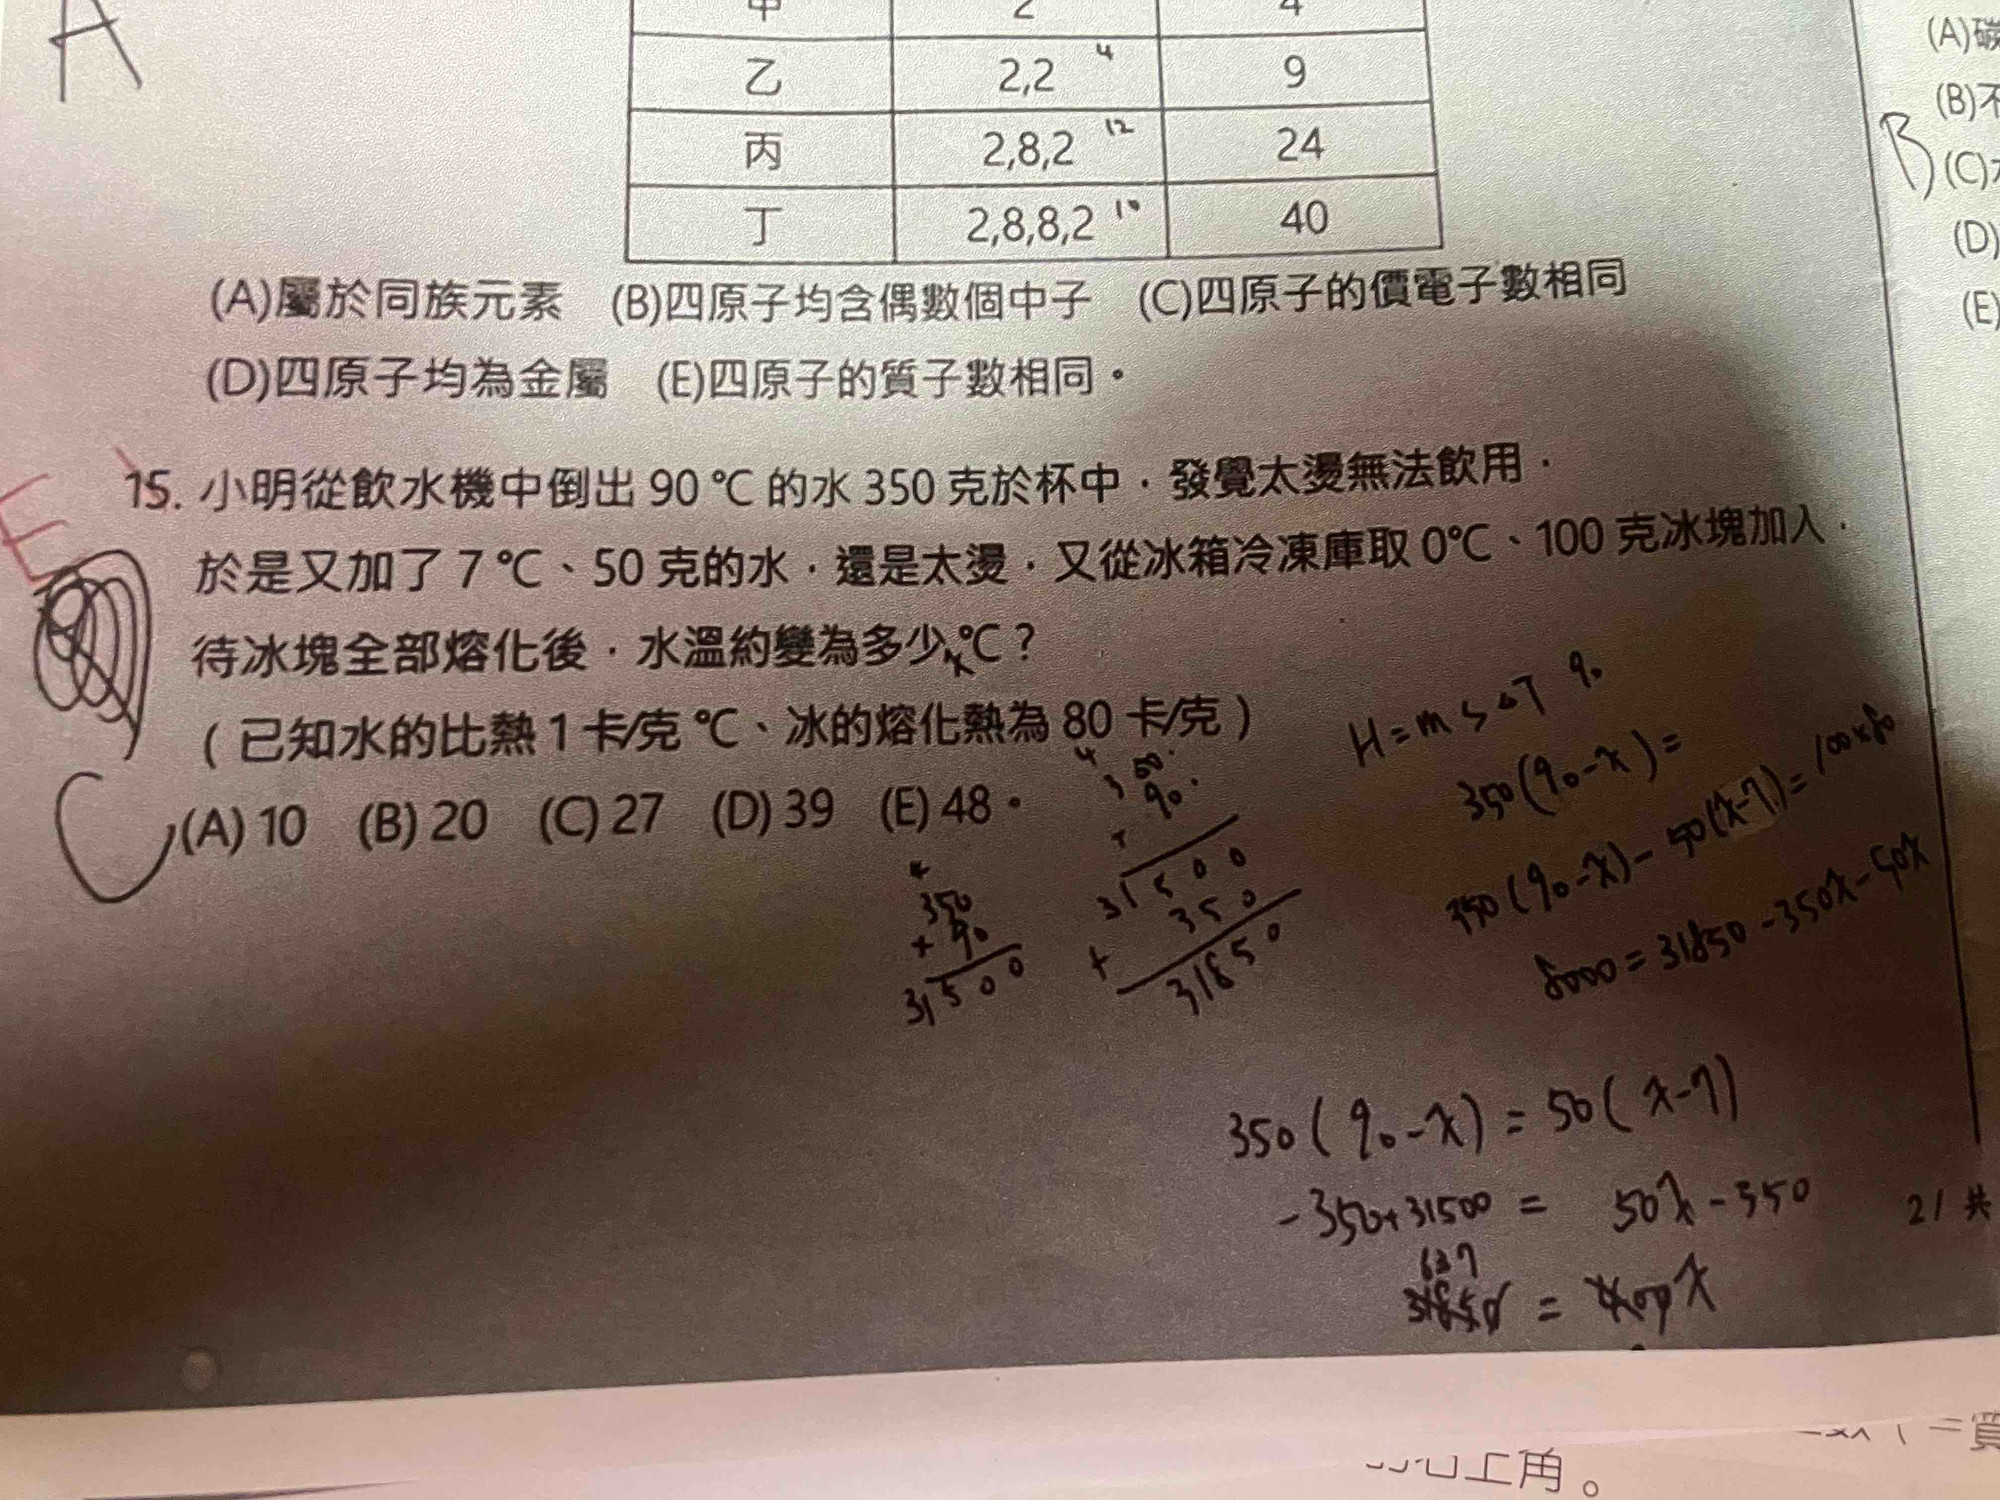 A
甲 2 4
乙 2,2 4 9
丙 2,8,2 12 24
丁 2,8,8,2 10 40
(A)屬於同族元素 (B)四原子均含偶數個中子 (C)四原子的價電子數相同
(D)四原子均為金屬 (E)四原子的質子數相同。
E
15. 小明從飲水機中倒出 90 ℃ 的水 350 克於杯中，發覺太燙無法飲用，
於是又加了 7 ℃、50 克的水，還是太燙，又從冰箱冷凍庫取 0℃、100 克冰塊加入，
待冰塊全部熔化後，水溫約變為多少 x ℃？
（已知水的比熱 1 卡/克 ℃、冰的熔化熱為 80 卡/克）
C
(A) 10 (B) 20 (C) 27 (D) 39 (E) 48。
4
350
+ 90
31500
90
31500
350
+
31850
H = m s △T 90
350(90-x) =
350(90-x) - 50(x-7) = 100×80
8000 = 31850 - 350x - 50x
350(90-x) = 50(x-7)
-350+31500 = 50x - 350
637
31850 = 400x
21 共
(A)碳
(B)不
B
(C)
(D)
(E)
上角。